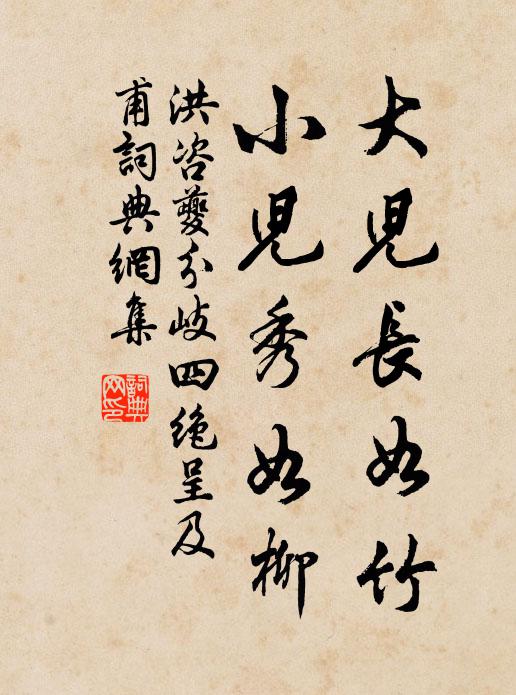 大兒長如竹
小兒秀如柳
洪咨夔分岐四絶呈及
甫詞典網集
詞典
网印